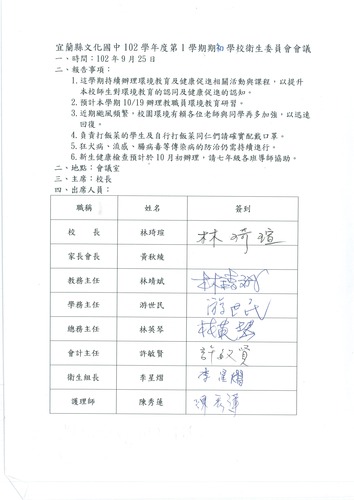 宜蘭縣文化國中 102 學年度第 1 學期期初學校衛生委員會會議
一、時間：102 年 9 月 25 日
二、報告事項：
1.這學期持續辦理環境教育及健康促進相關活動與課程，以提升
本校師生對環境教育的認同及健康促進的認知。
2.預計本學期 10/19 辦理教職員環境教育研習。
3.近期颱風頻繁，校園環境有賴各位老師與同學再多加強，以迅速
回復。
4.負責打飯菜的學生及自行打飯菜同仁們請確實配戴口罩。
5.狂犬病、流感、腸病毒等傳染病的防治仍需持續進行。
6.新生健康檢查預計於 10 月初辦理，請七年級各班導師協助。
二、地點：會議室
三、主席：校長
四、出席人員：
職稱 姓名 簽到
校 長 林琦瑄 林琦瑄
家長會長 黃秋綾
教務主任 林靖斌 林靖斌
學務主任 游世民 游世民
總務主任 林英琴 林英琴
會計主任 許敏賢 許敏賢
衛生組長 李星熠 李星熠
護理師 陳秀蓮 陳秀蓮